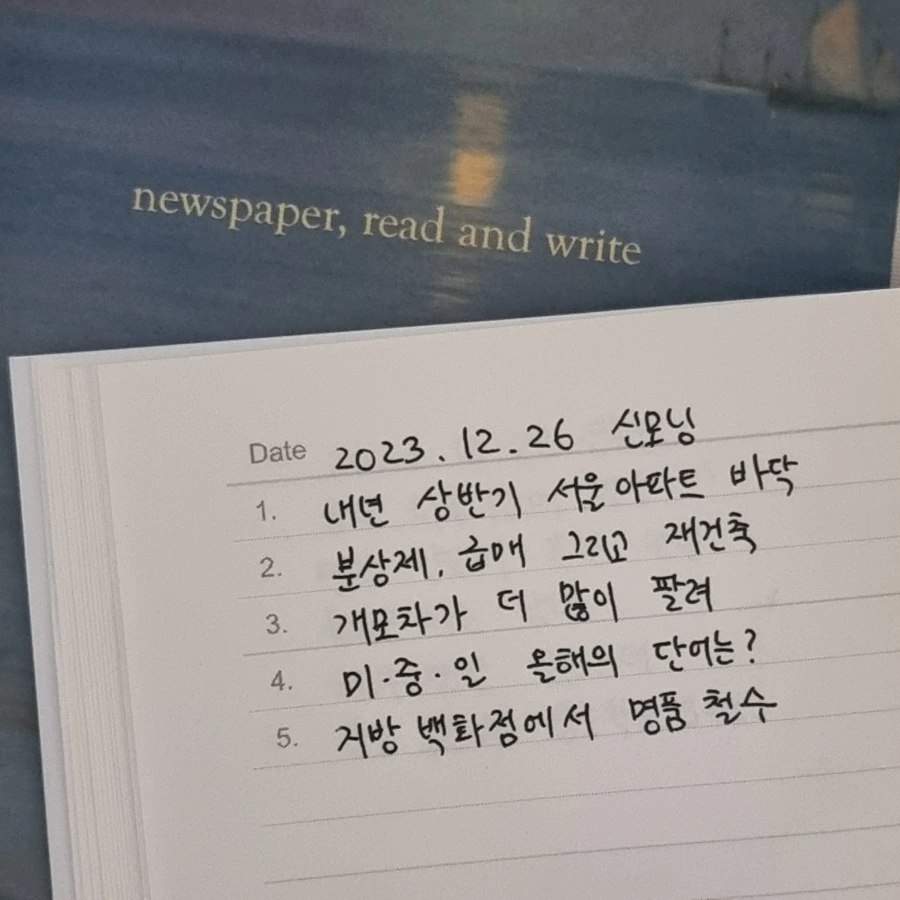 newspaper, read and write
Date 2023.12.26 신모닝
1. 내년 상반기 서울아파트 바닥
2. 분상제, 급매 그리고 재건축
3. 개모차가 더 많이 팔려
4. 미·중·일 올해의 단어는?
5. 지방 백화점에서 명품 철수